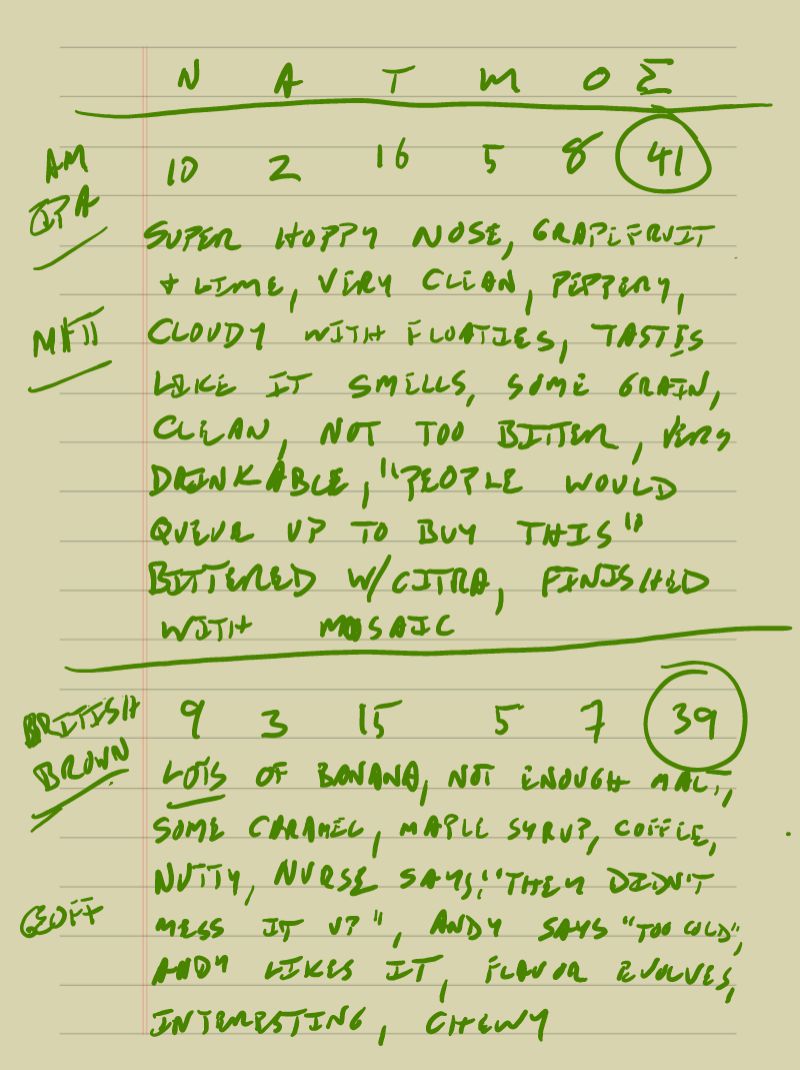 N A T M O Σ
AM IPA
10 2 16 5 8 41
SUPER HOPPY NOSE, GRAPEFRUIT
+ LIME, VERY CLEAN, PEPPERY,
MATT
CLOUDY WITH FLOATIES, TASTES
LIKE IT SMELLS, SOME GRAIN,
CLEAN, NOT TOO BITTER, VERY
DRINKABLE, "PEOPLE WOULD
QUEUE UP TO BUY THIS"
BITTERED W/CITRA, FINISHED
WITH MOSAIC
BRITISH BROWN
9 3 15 5 7 39
LOTS OF BANANA, NOT ENOUGH MALT,
SOME CARAMEL, MAPLE SYRUP, COFFEE,
NUTTY, NURSE SAYS, "THEY DIDN'T
GEOFF
MESS IT UP", ANDY SAYS "TOO COLD",
ANDY LIKES IT, FLAVOR EVOLVES,
INTERESTING, CHEWY